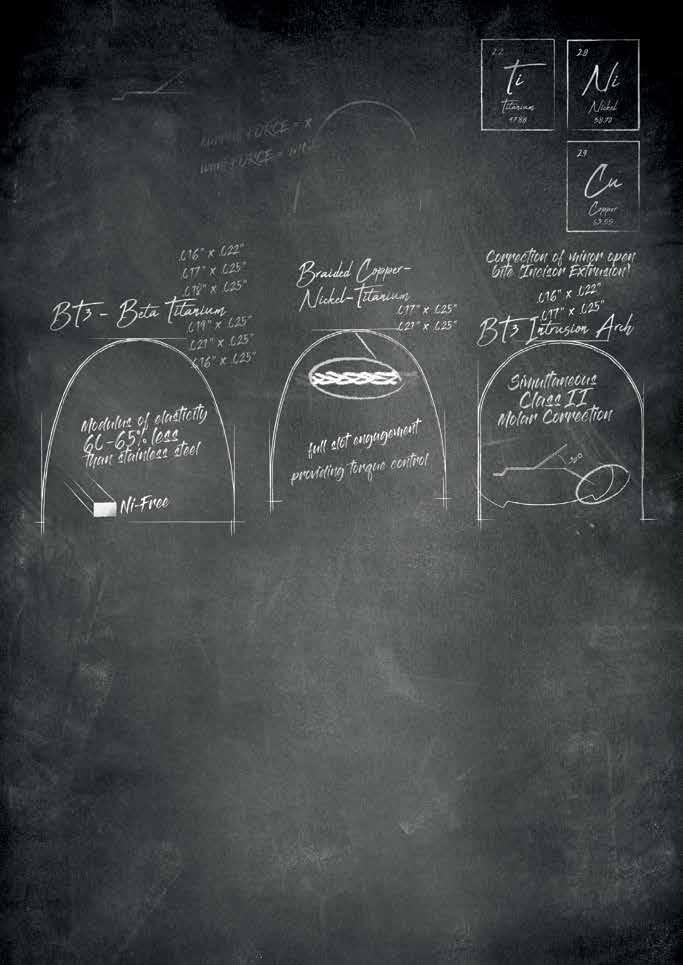 22
Ti
Titanium
47.88
28
Ni
Nickel
58.70
29
Cu
Copper
63.55
FORCE =
FORCE =
.016" x .022"
.017" x .025"
.018" x .025"
BT3 - Beta Titanium
.019" x .025"
.021" x .025"
.016" x .025"
Modulus of elasticity
60-65% less
than stainless steel
Ni-Free
Braided Copper-
Nickel-Titanium
.017" x .025"
.021" x .025"
full slot engagement
providing torque control
Correction of minor open
bite (Incisor Extrusion)
.016" x .022"
.017" x .025"
BT3 Intrusion Arch
Simultaneous
Class II
Molar Correction